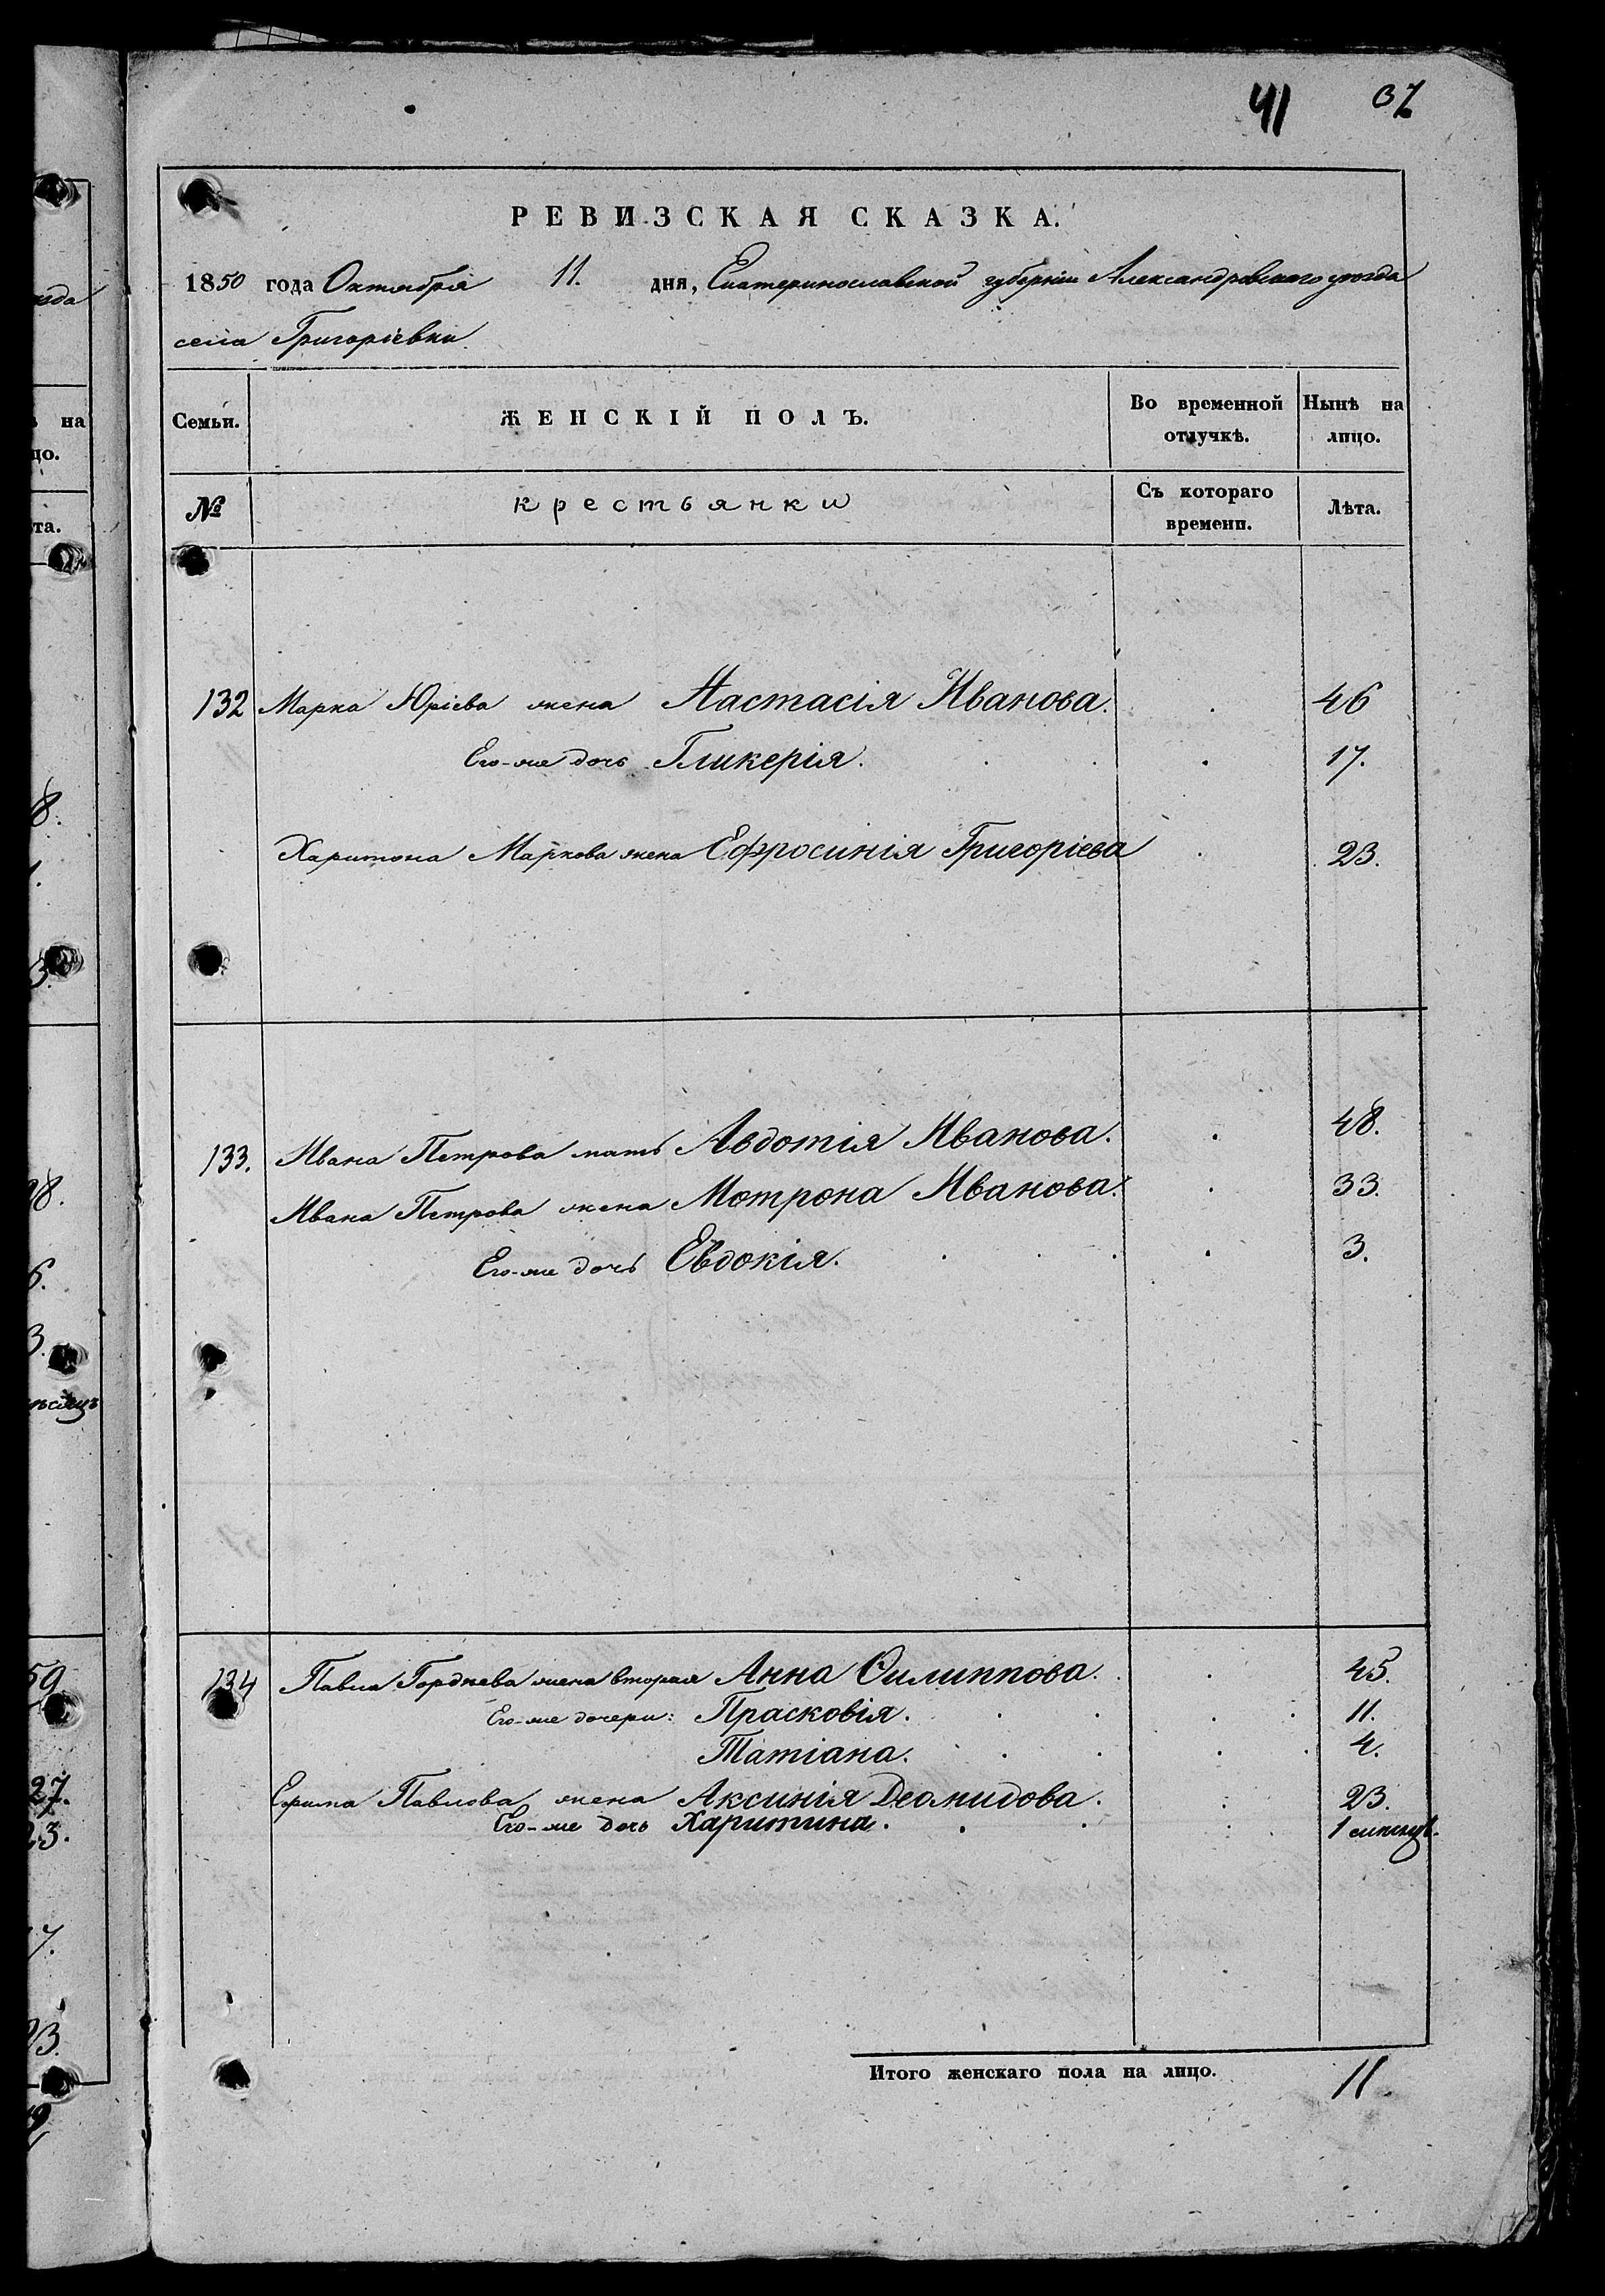 41 37
РЕВИЗСКАЯ СКАЗКА.
1850 года Октября 11. дня, Екатеринославской губерніи Александровскаго уѣзда
села Григоріевки
Семьи. ЖЕНСКІЙ ПОЛЪ. Во временной отлучкѣ. Нынѣ на лицо.
№ крестьянки Съ котораго времени. Лѣта.
132 Марка Юріева жена Настасія Иванова. 46
Его-же дочь Гликерія. 17.
Харитона Маркова жена Ефросинія Григоріева 23.
133. Ивана Петрова мать Авдотія Иванова. 48.
Ивана Петрова жена Мотрона Иванова. 33.
Его-же дочь Евдокія. 3.
134 Павла Гордѣева жена вторая Анна Филиппова. 45.
Его-же дочери: Прасковія. 11.
Татіана. 4.
Ефима Павлова жена Аксинія Деомидова. 23.
Его-же дочь Харитина. 1
Итого женскаго пола на лицо. 11.
на
цо.
та.
8.
6.
3.
мѣсяцъ
59
27.
23.
7.